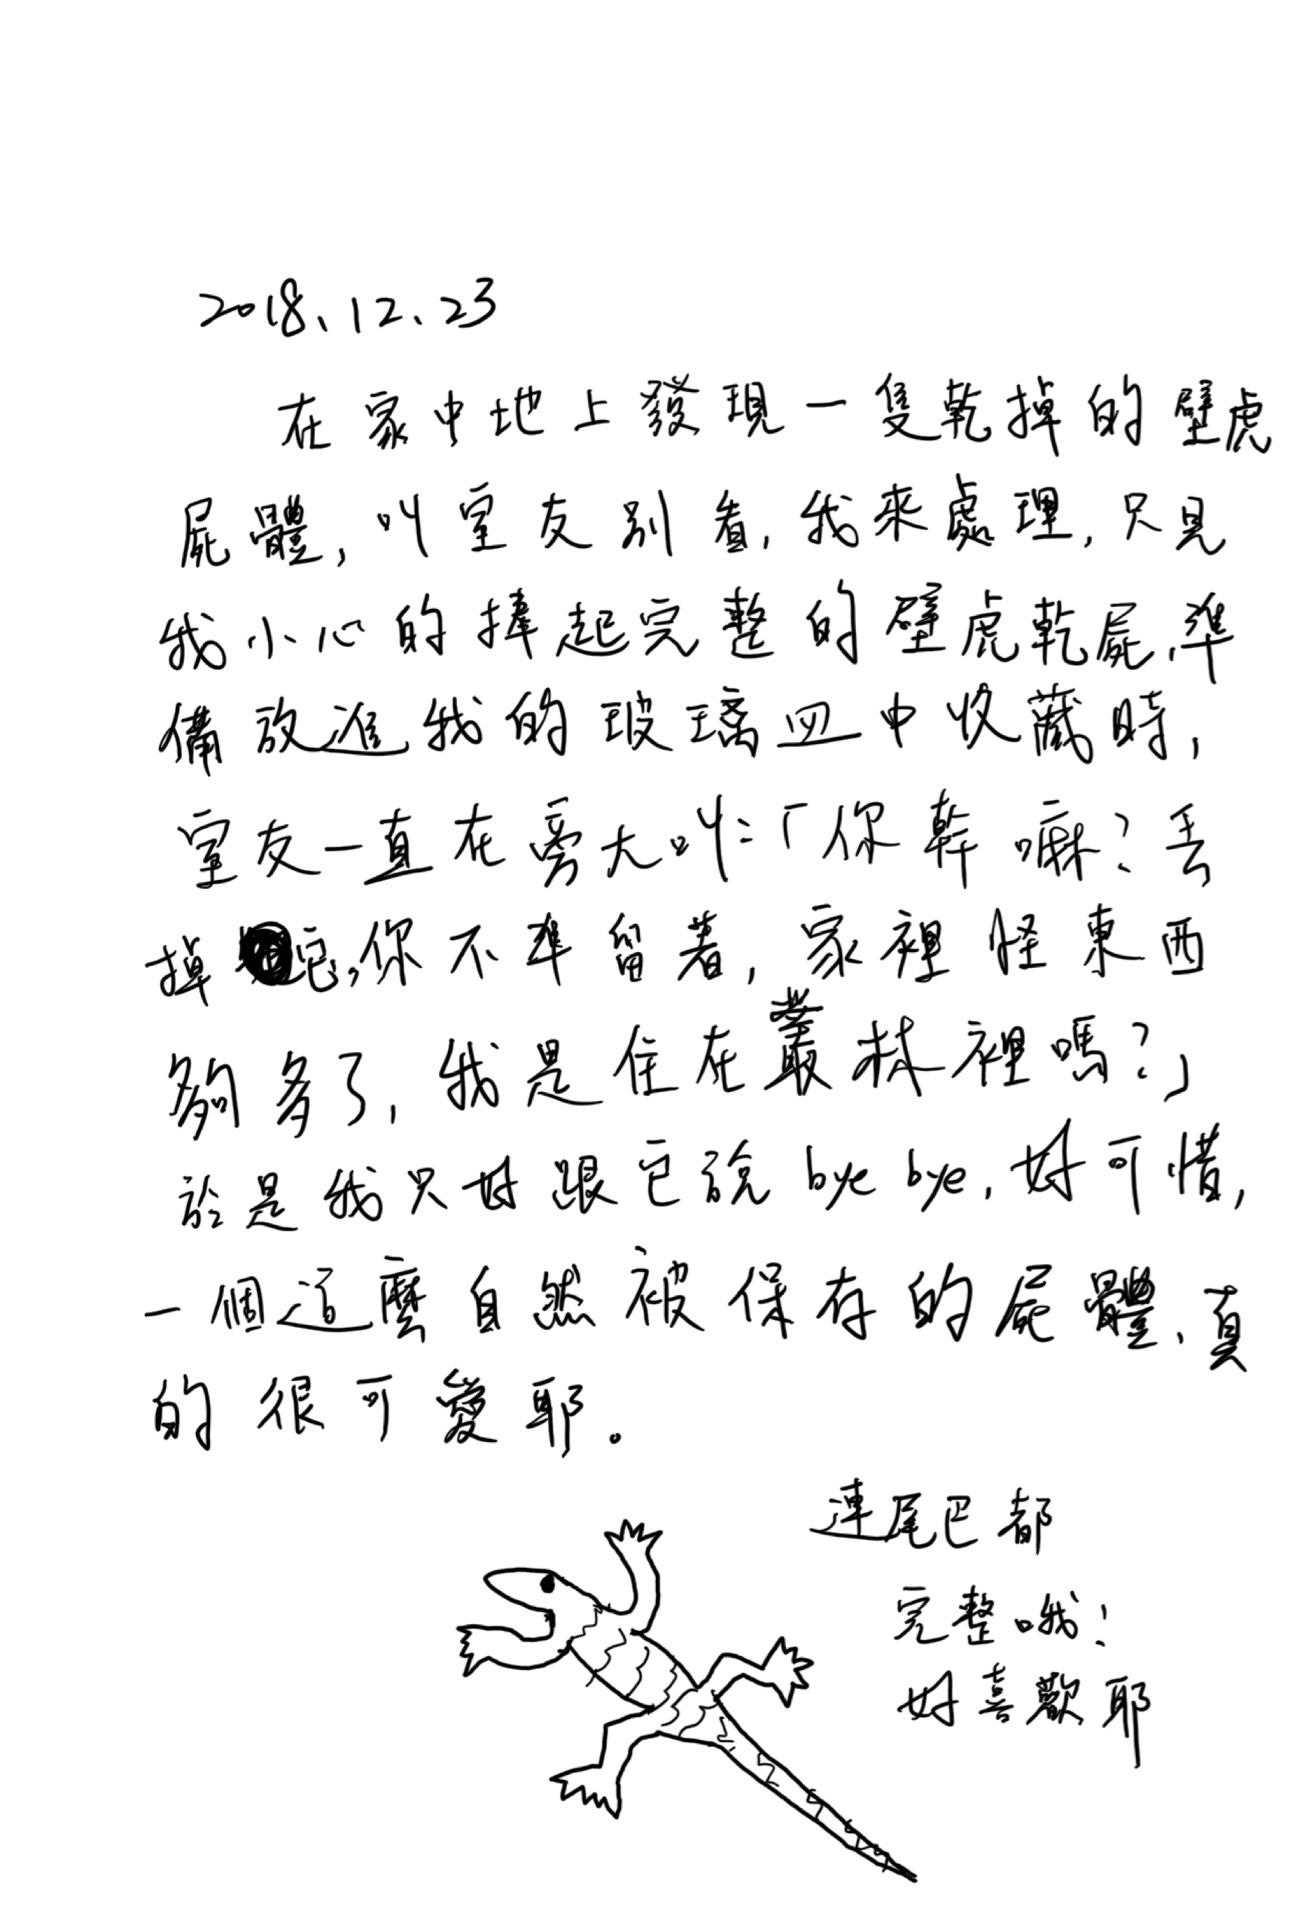 2018、12、23
在家中地上發現一隻乾掉的壁虎
屍體,叫室友別看,我來處理,只見
我小心的捧起完整的壁虎乾屍,準
備放進我的玻璃皿中收藏時,
室友一直在旁大叫:「你幹嘛?丟
掉它,你不準留著,家裡怪東西
夠多了,我是住在叢林裡嗎?」
於是我只好跟它說bye bye,好可惜,
一個這麼自然被保存的屍體、真
的很可愛耶。
連尾巴都
完整哦!
好喜歡耶